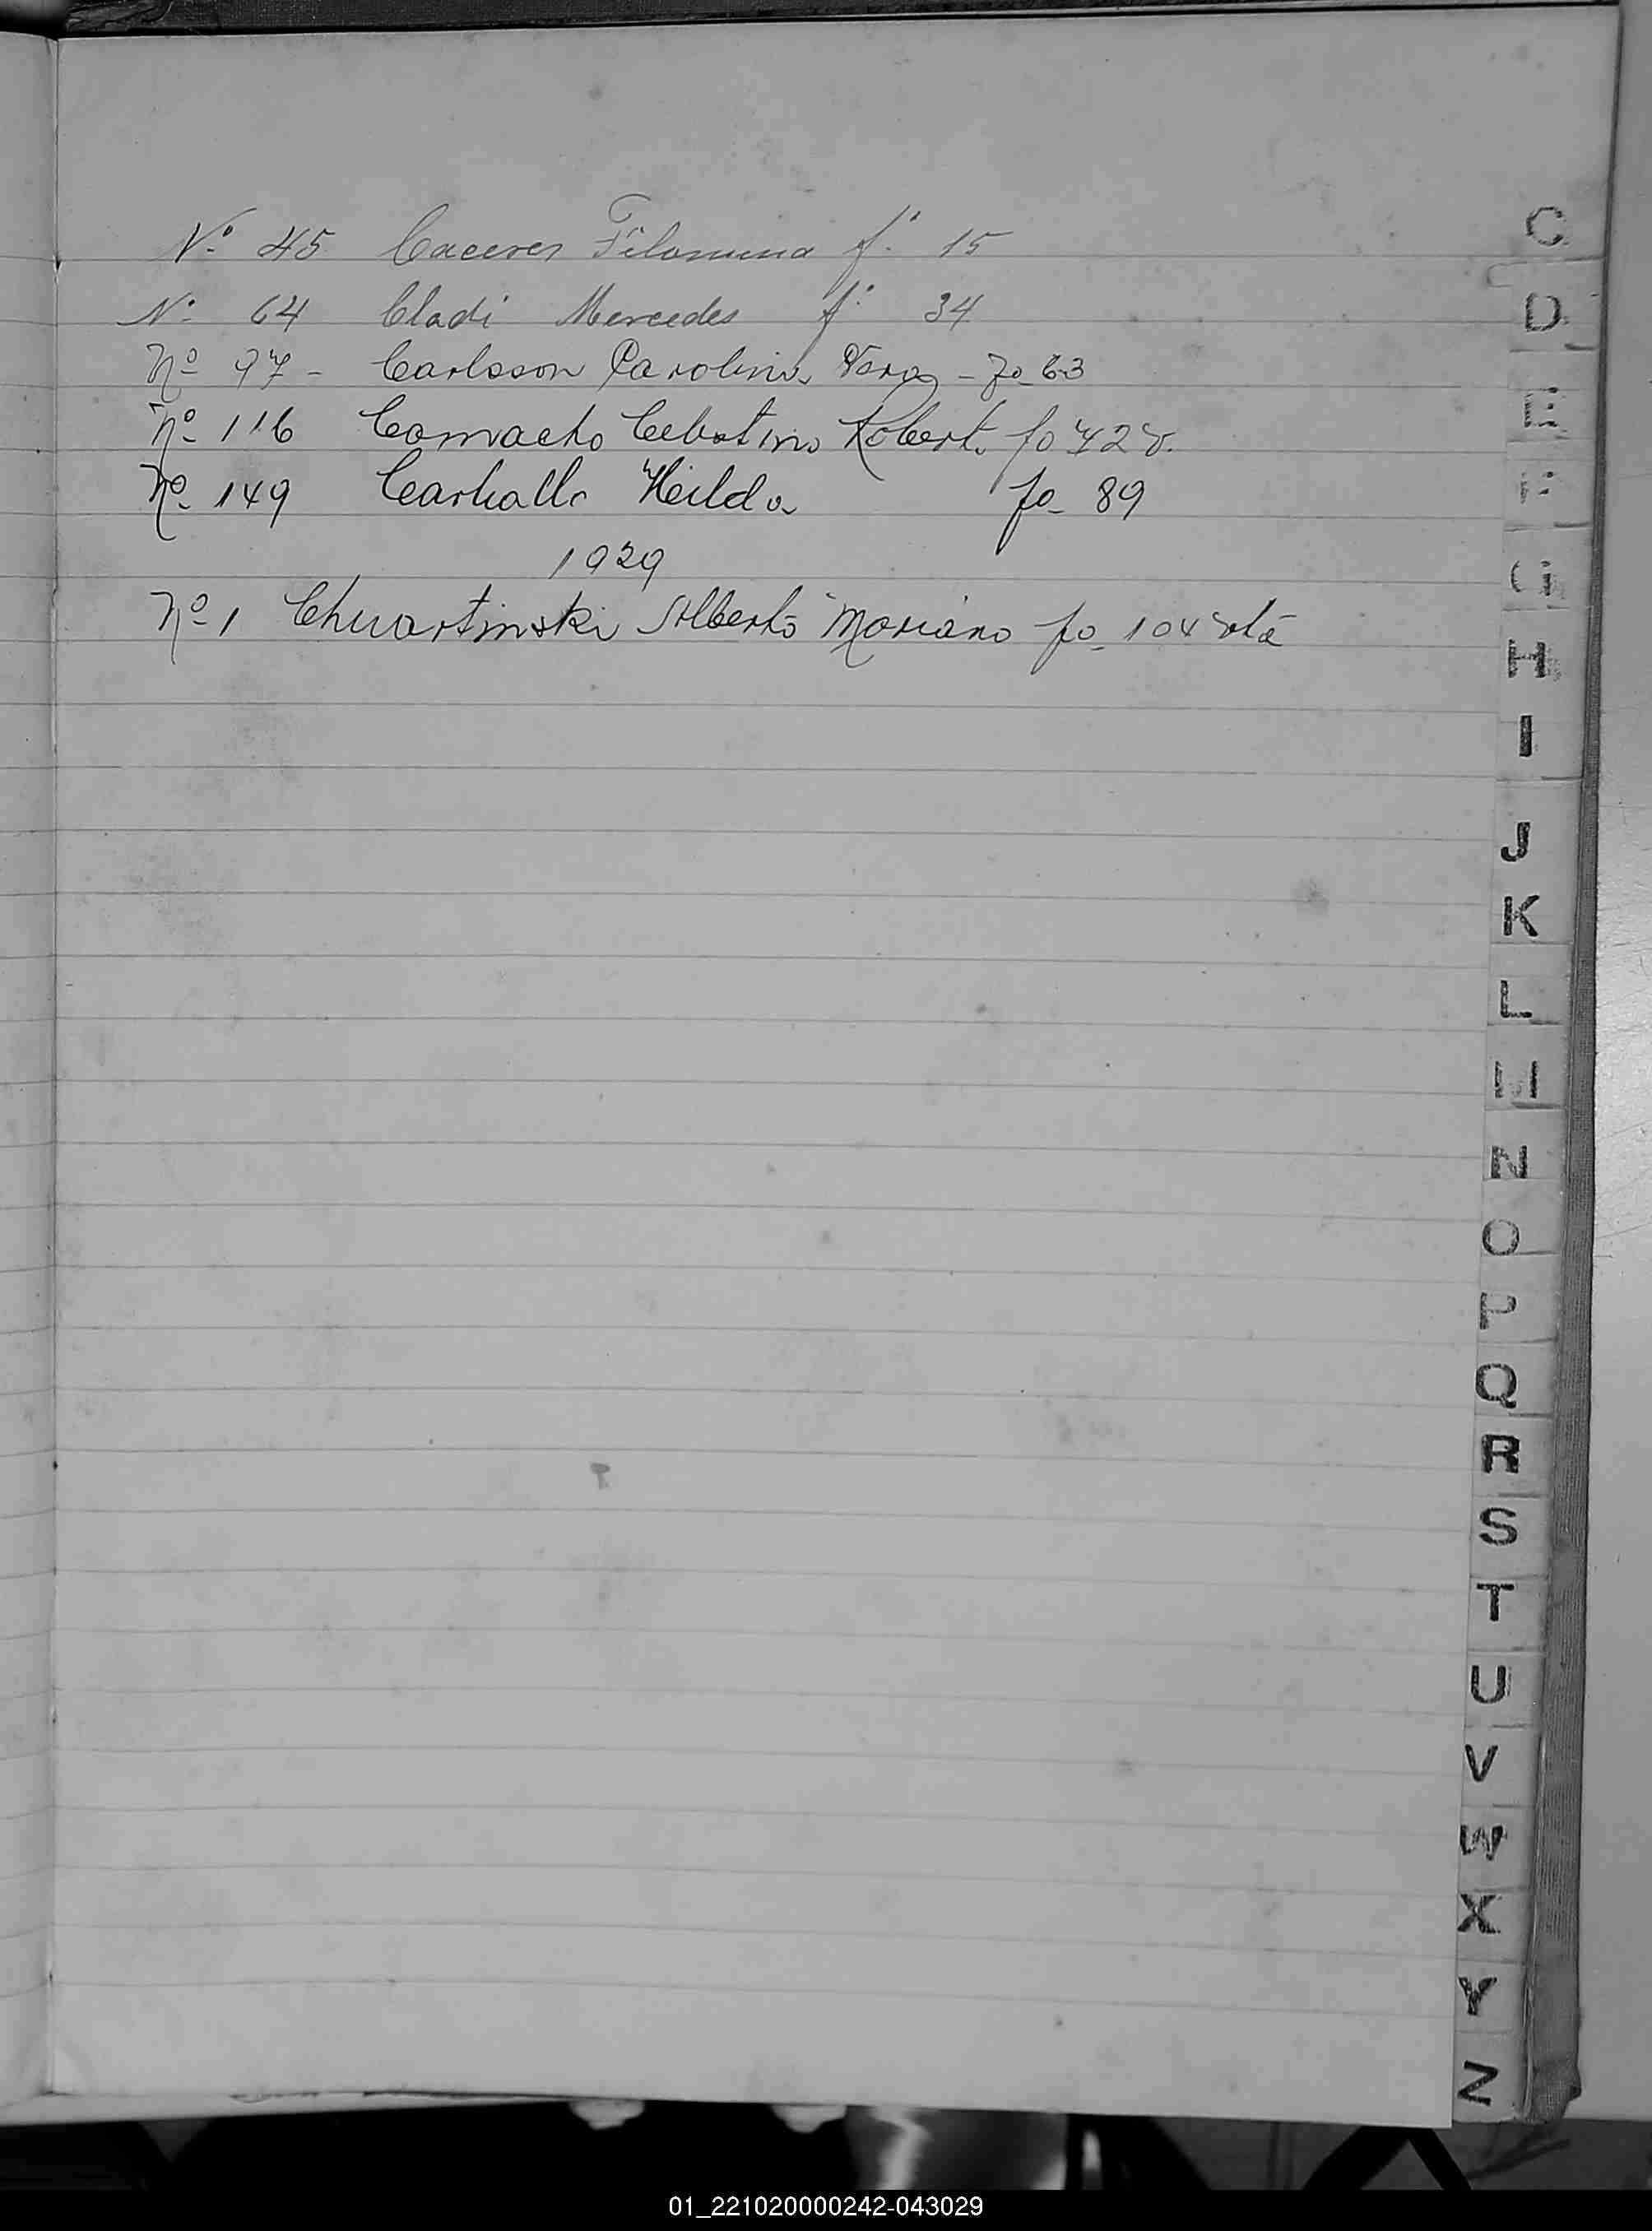 Nº 45 Caceres Filomena fº 15
Nº 64 Cladi Mercedes fº 34
Nº 97 - Carlsson Carolina Vera - fo 63
Nº 116 Camacho Celestino Roberto fo 72 v.
Nº 149 Carballo Hilda fo 89
1929
Nº 1 Chwartinski Alberto Mariano fo 104 vta
C
D
E
F
G
H
I
J
K
L
M
N
O
P
Q
R
S
T
U
V
W
X
Y
Z
01_221020000242-043029